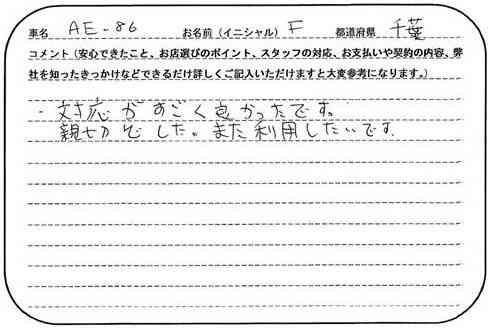 車名 AE-86 お名前(イニシャル) F 都道府県 千葉
コメント(安心できたこと、お店選びのポイント、スタッフの対応、お支払いや契約の内容、弊
社を知ったきっかけなどできるだけ詳しくご記入いただけますと大変参考になります。)
・対応がすごく良かったです。
親切でした。また利用したいです。